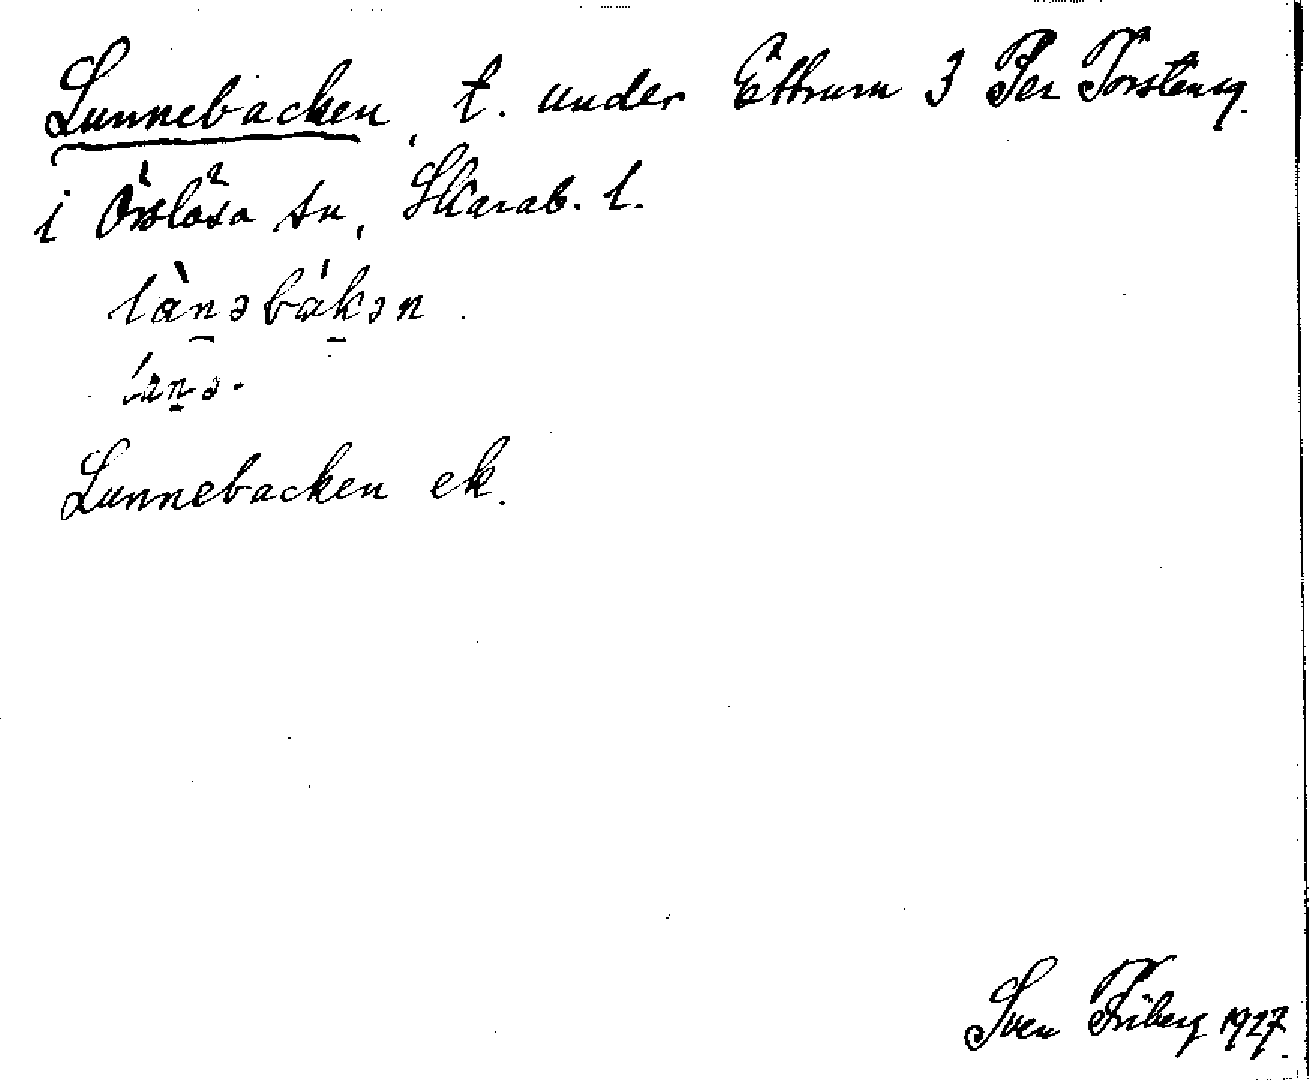 Lunnebacken, t. under Ettrum 3 Per Torstensg.
i Örslösa sn, Skarab. l.
lànəbákən.
Lunnebacken ek.
Sven Friberg 1927.